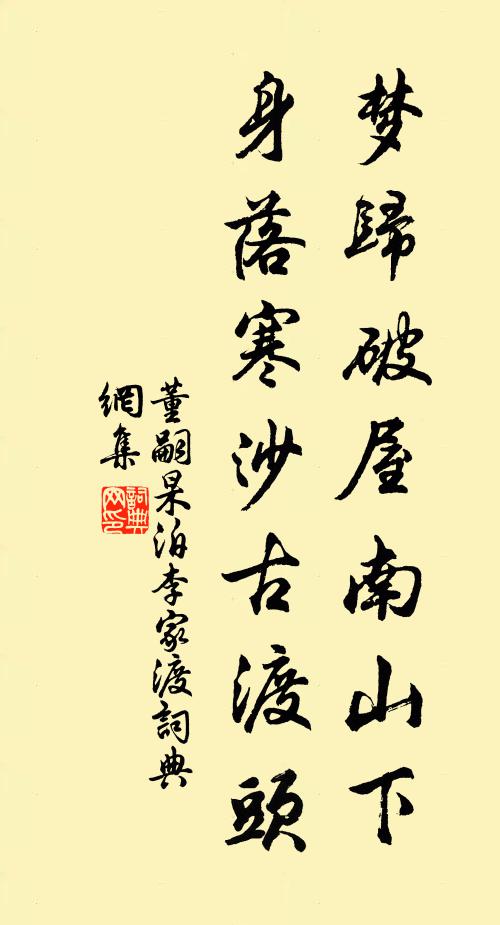 梦歸破屋南山下
身落寒沙古渡頭
董嗣杲泊李家渡詞典
網集
詞典网印